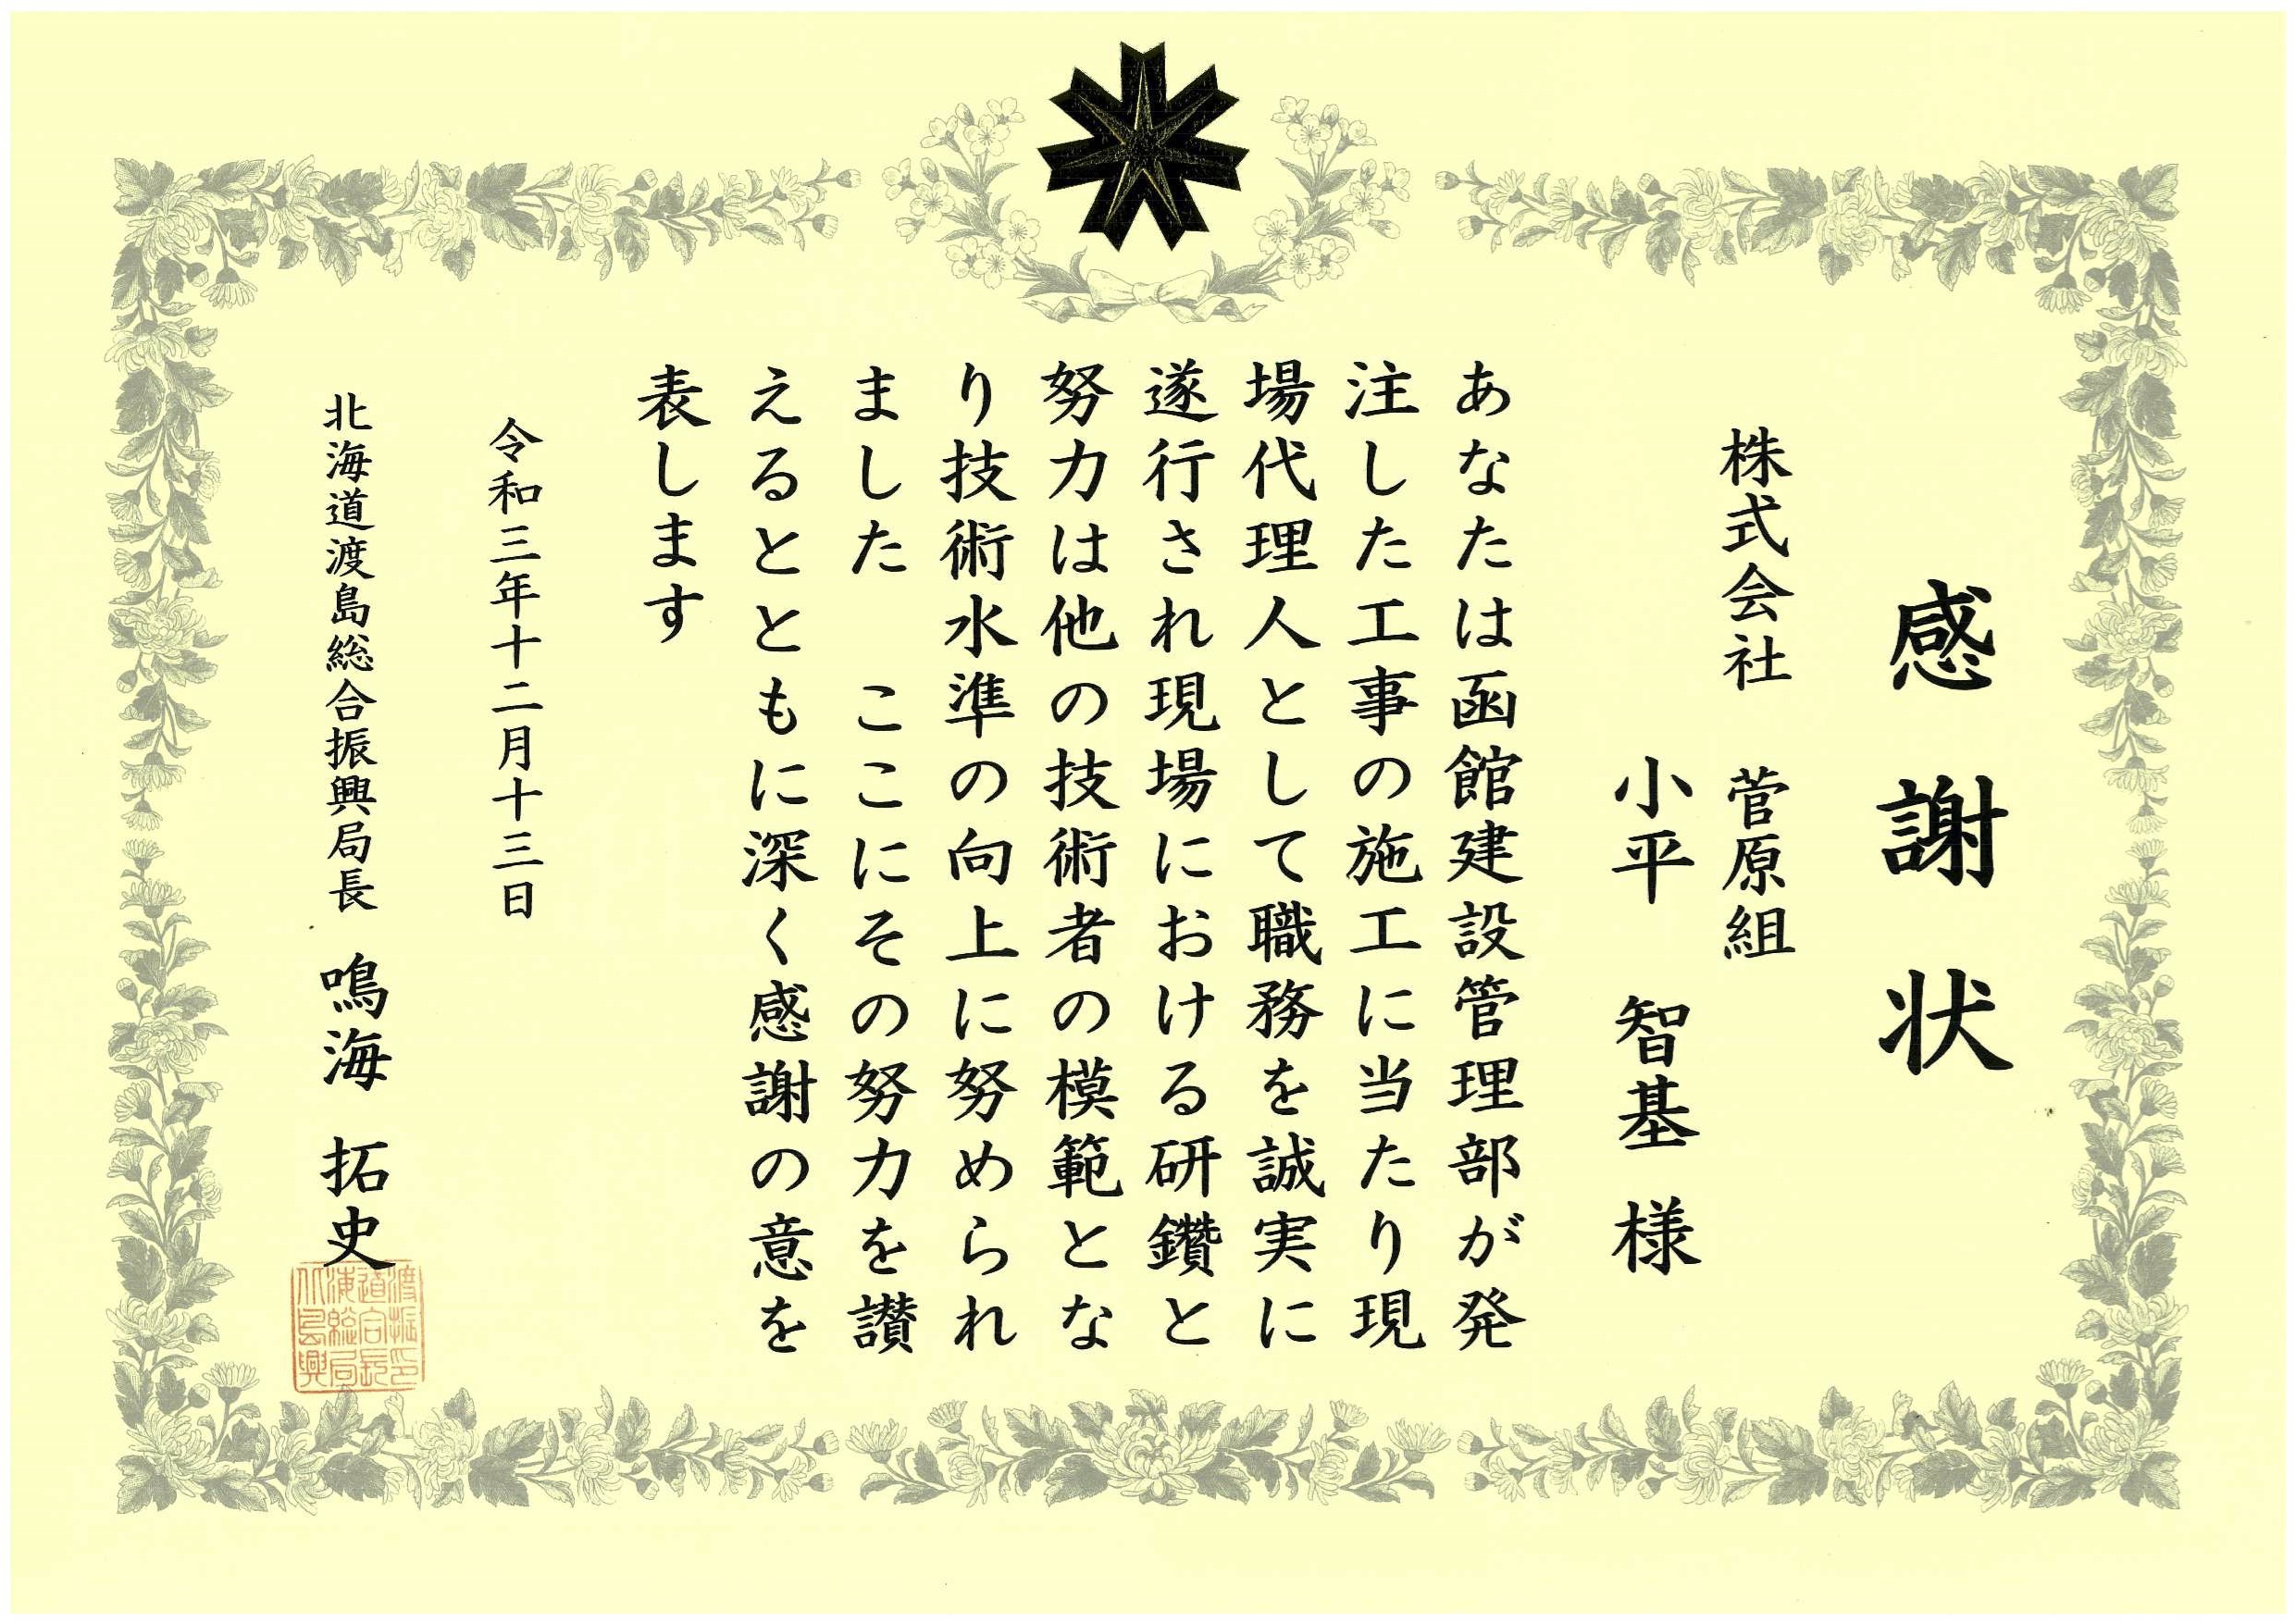 感謝状
株式会社 菅原組
小平 智基 様
あなたは函館建設管理部が発
注した工事の施工に当たり現
場代理人として職務を誠実に
遂行され現場における研鑽と
努力は他の技術者の模範とな
り技術水準の向上に努められ
ました ここにその努力を讃
えるとともに深く感謝の意を
表します
令和三年十二月十三日
北海道渡島総合振興局長 鳴海 拓史
北海道渡
島総合振
興局長印